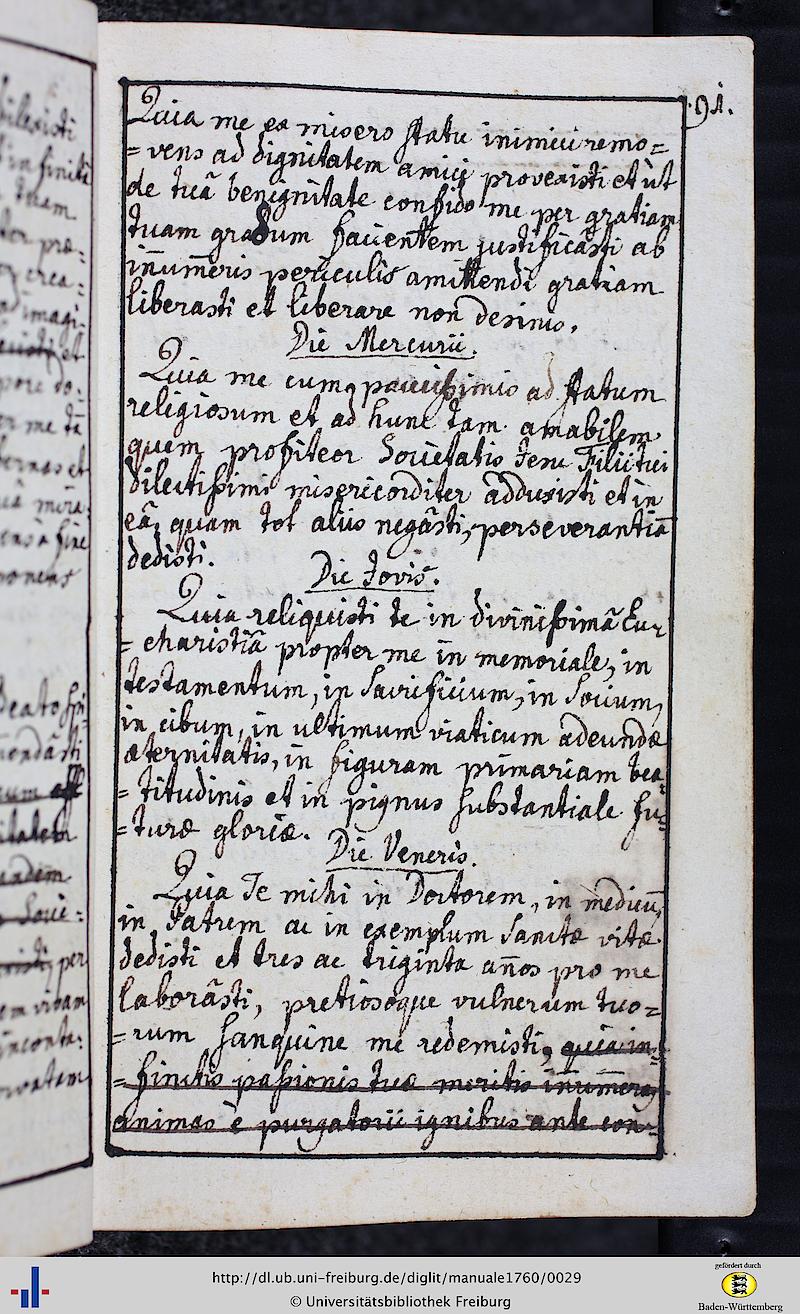 .91.
Quia me ex misero statu inimici remo=
=vens ad dignitatem amici provexisti et ut
de tuâ benignitate confido me per gratiam
tuam gradum facientem justificasti ab
inumeris periculis amittendi gratiam
liberasti et liberare non desinis.
Die Mercurii.
Quia me cum paucissimis ad statum
religiosum et ad hunc tam amabilem
quem profiteor Societatis Jesu Filii tui
dilectissimi misericorditer adduxisti et in
eâ, quam tot aliis negâsti, perseverantiã
dedisti.
Die Jovis.
Quia reliquisti te in divinissimâ Eu-
=charistiâ propter me in memoriale, in
testamentum, in Sacrificium, in Socium,
in cibum, in ultimum viaticum adeundæ
æternitatis, in figuram primariam bea=
=titudinis et in pignus substantiale fu=
=turæ gloriæ.
Die Veneris.
Quia Te mihi in Doctorem, in medicũ,
in Patrem ac in exemplum Sanctæ vitæ
dedisti et tres ac triginta años pro me
laborâsti, pretiosoque vulnerum tuo=
=rum Sanguine me redemisti, quia in=
=finitis passionis tuæ meritis inumeras
animas è purgatorii ignibus ante con=
pilexisti
infinitâ
tuam
præ=
crea=
imagi=
et
pore do=
me tã
et
mira=
fine
ponens
Beato
mendâsti
itatem
eandem
Socie=
per
vivam
inconta=
http://dl.ub.uni-freiburg.de/diglit/manuale1760/0029
© Universitätsbibliothek Freiburg
gefördert durch
Baden-Württemberg